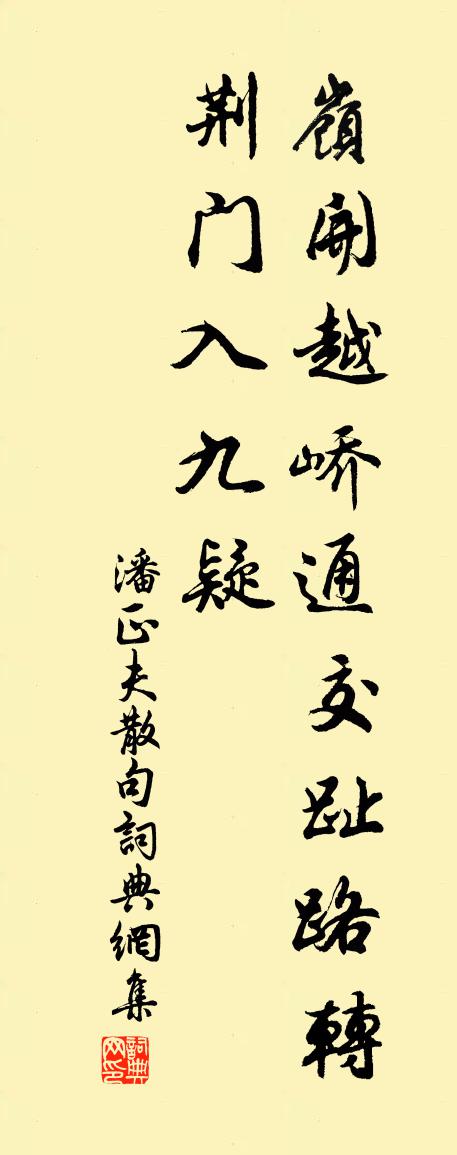 嶺開越嶠通交趾路轉
荆门入九疑
潘正夫散句詞典網集
詞典网印